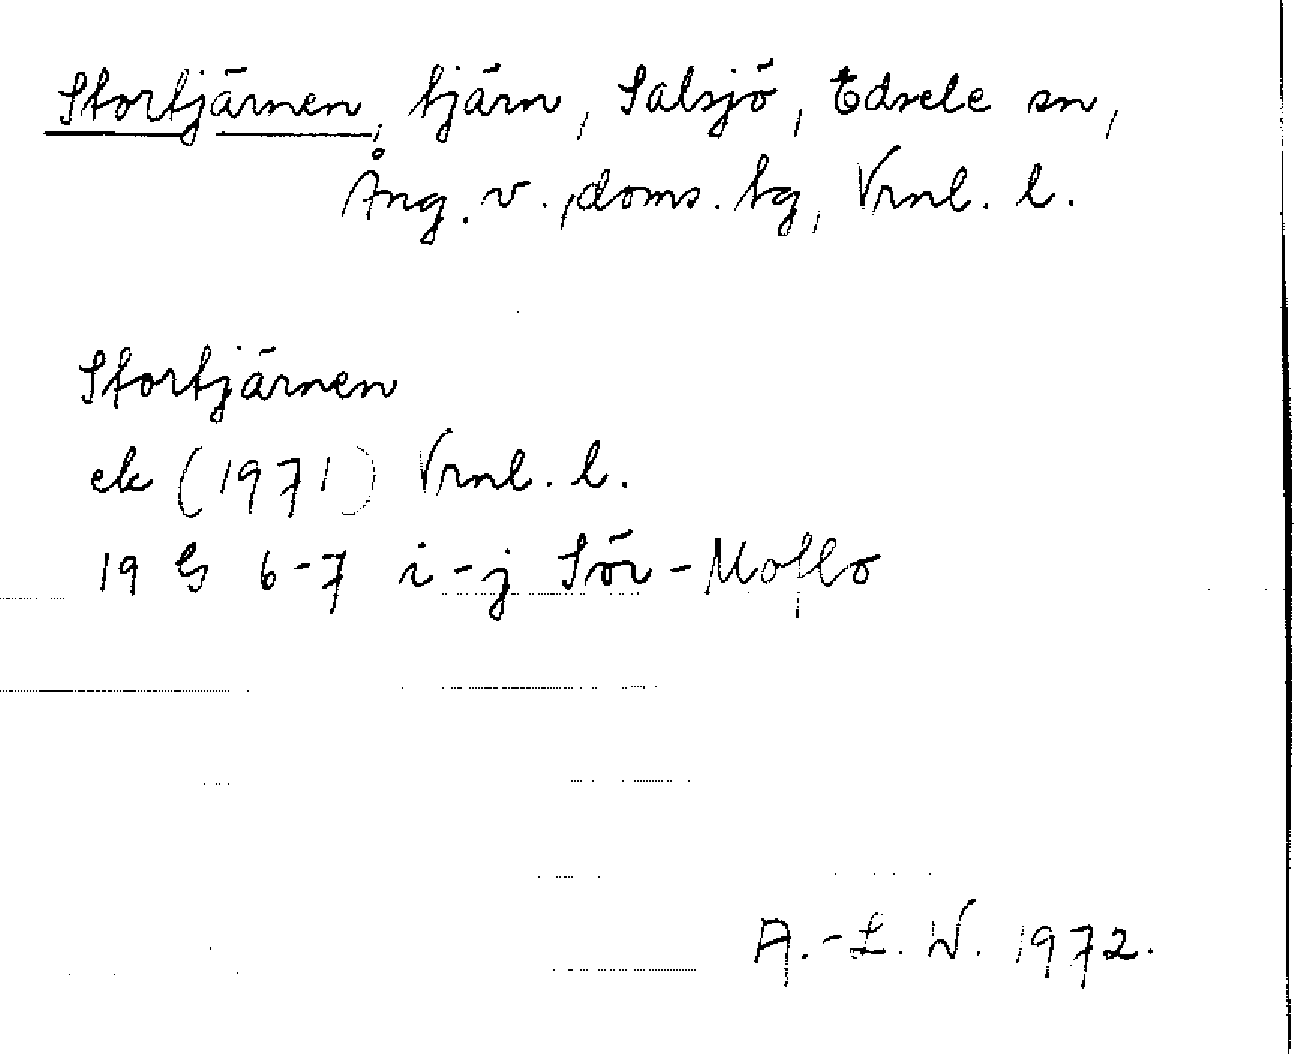 Stortjärnen, tjärn, Salsjö, Edsele sn,
Ång. v. , doms. tg, Vrnl. l.
Stortjärnen
ek (1971) Vrnl. l.
19 G 6-7 i-j Sör-Moflo
A.-L. W. 1972.